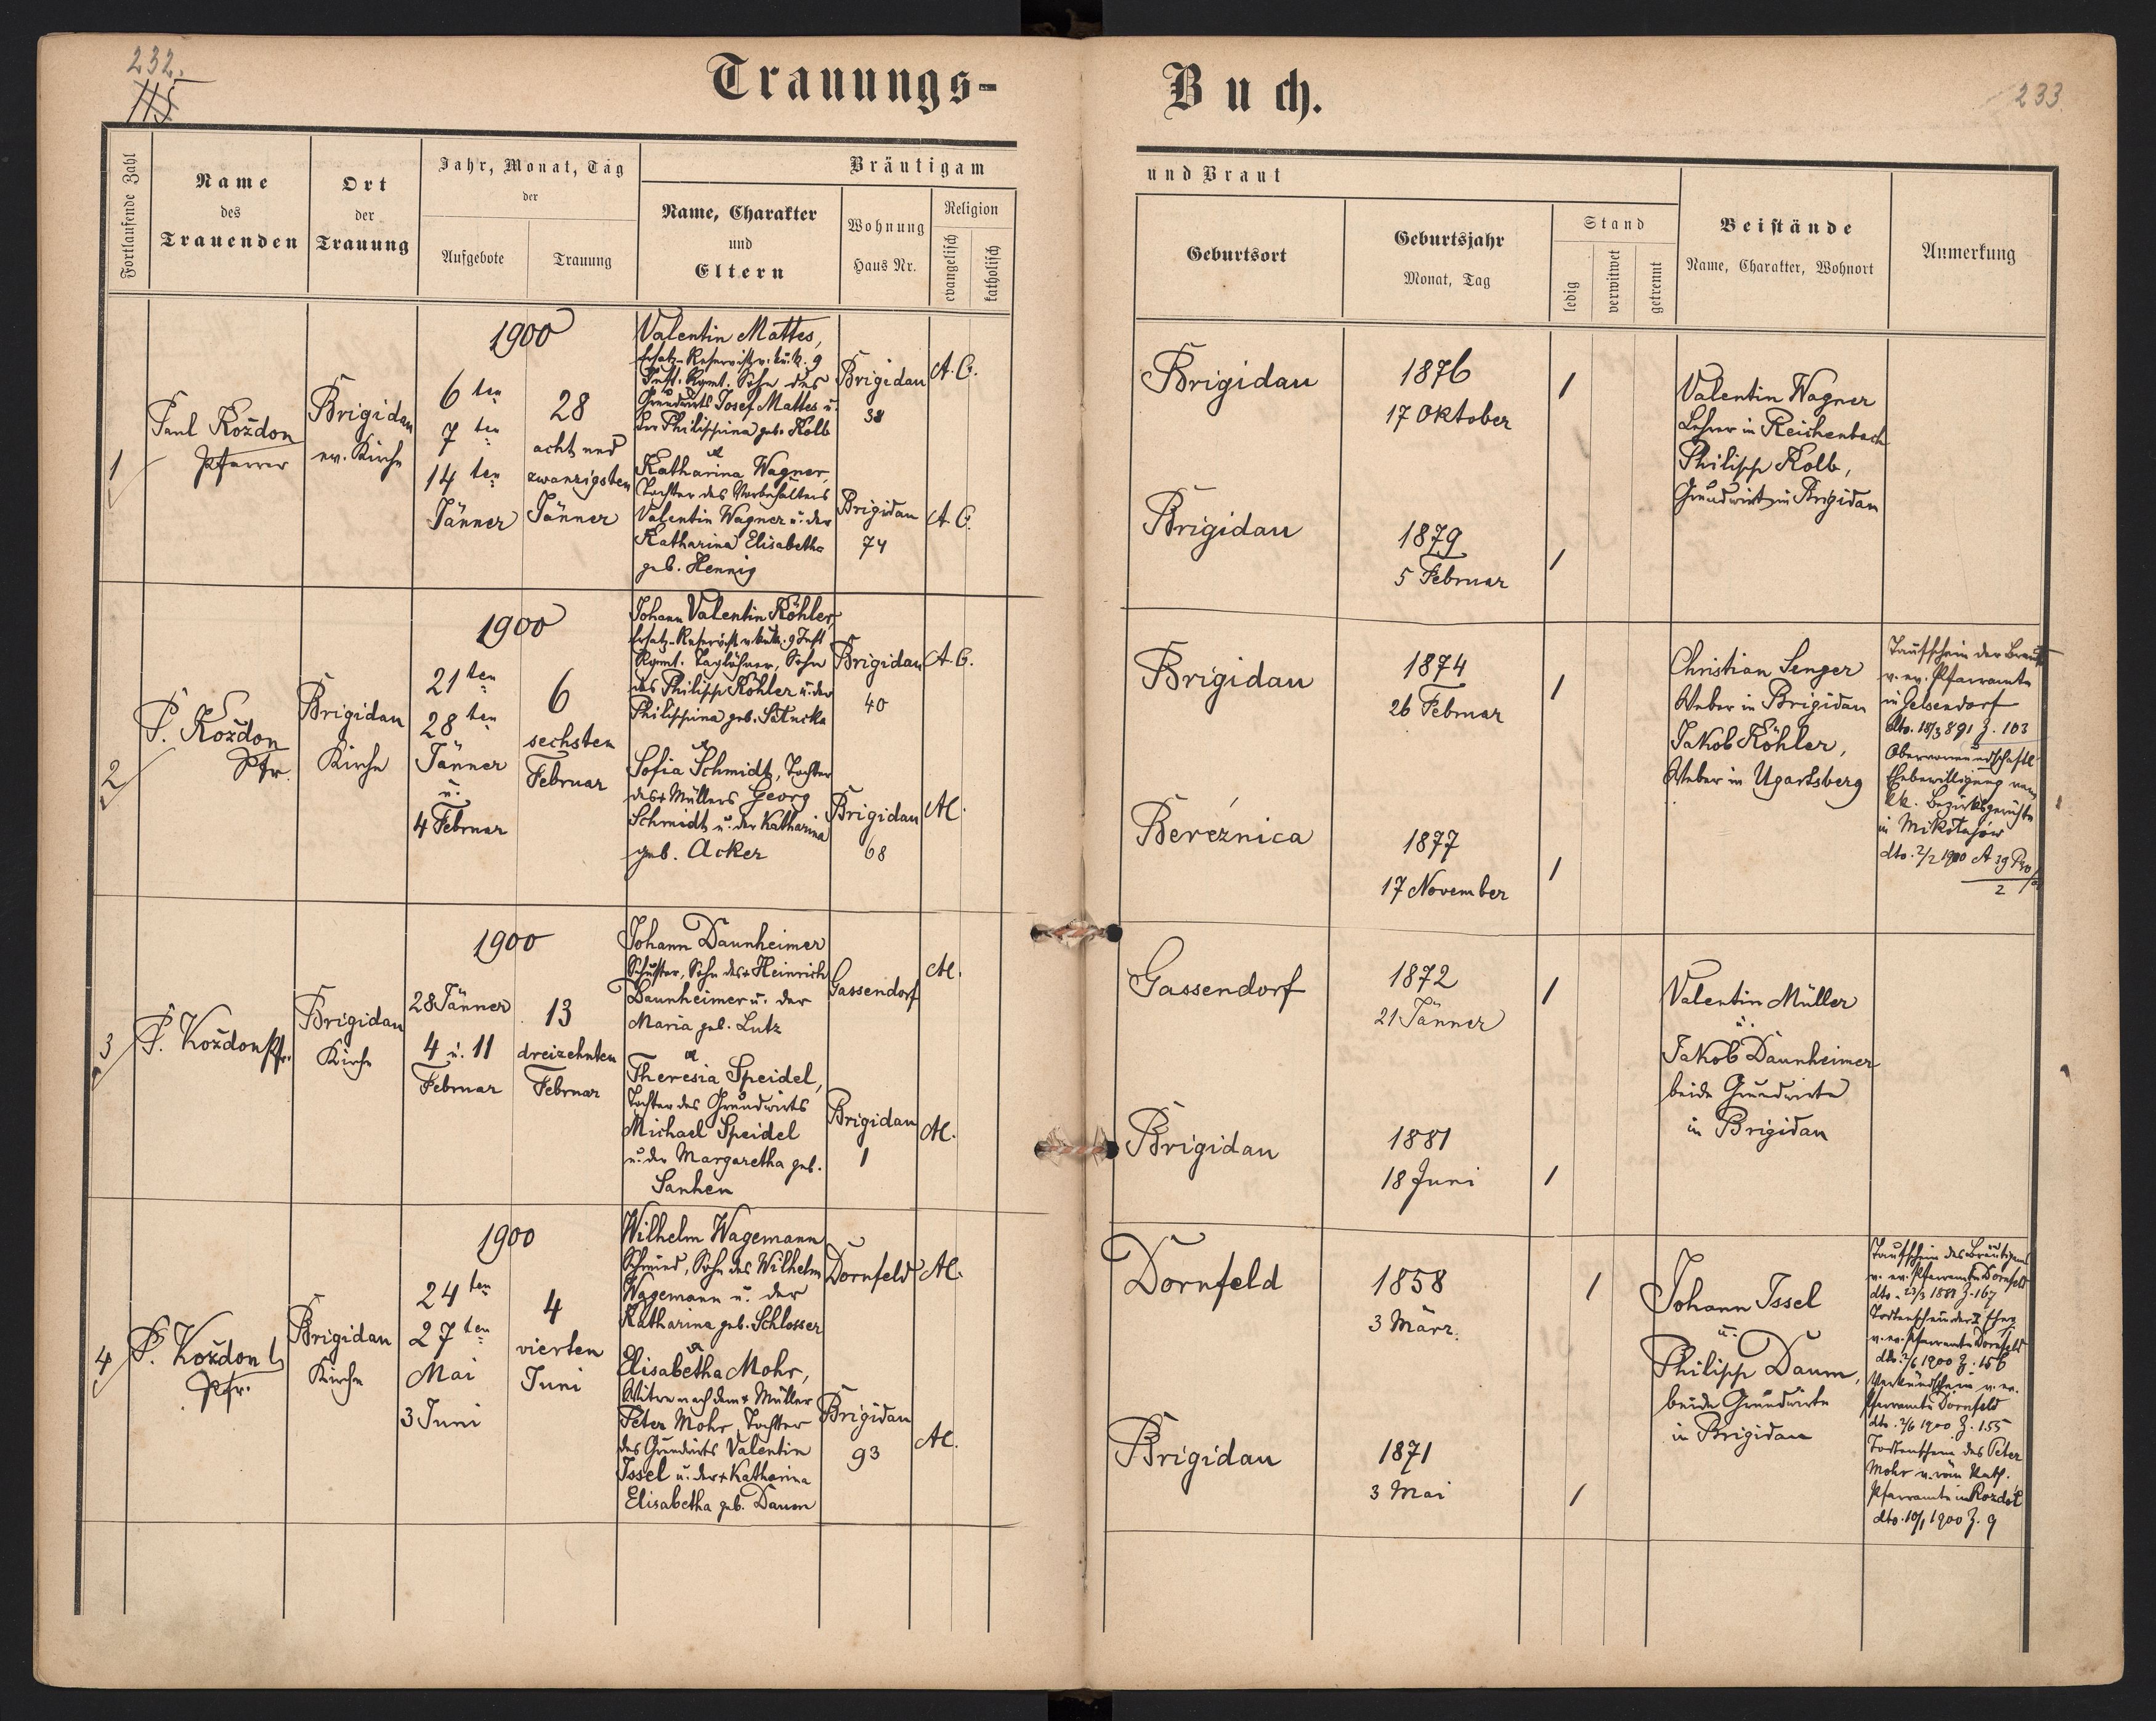 232.
115
Trauungs-
Fortlaufende Zahl
Name
des
Trauenden
Ort
der
Trauung
Jahr, Monat, Tag
der
Aufgebote
Trauung
Bräutigam
Name, Charakter
und
Eltern
Wohnung
Haus Nr.
Religion
evangelisch
katholisch
1
Paul Koždon
Pfarrer
Brigidau
ev. Kirche
1900
6 ten
7 ten
14 ten
Jänner
28
acht und
zwanzigsten
Jänner
Valentin Mattes,
Ersatz-Reservist v. k.u.k. 9
Inft. Rgmt. Sohn des
Grundwirts Josef Mattes u.
der Philippina geb. Kolb
Brigidau
38
A. C.
u
Katharina Wagner,
Tochter des Vorbehalters
Valentin Wagner u. der
Katharina Elisabetha
geb. Hennig
Brigidau
74
A. C.
2
P. Koždon
Pfr.
Brigidau
Kirche
1900
21 ten
28 ten
Jänner
u.
4 Februar
6
sechsten
Februar
Johann Valentin Köhler,
Ersatz-Reservist v. k.u.k. 9 Inft
Rgmt. Taglöhner, Sohn
des Philipp Köhler u. der
Philippina geb.
Brigidau
40
A. C.
u
Sofia Schmidt, Tochter
des + Müllers Georg
Schmidt u. der Katharina
geb. Acker
Brigidau
68
AC.
3
P. Koždon Pfr.
Brigidau
Kirche
1900
28 Jänner
4 u. 11
Februar
13
dreizehnten
Februar
Johann Daunheimer
Schuster, Sohn des + Heinrich
Daunheimer u. der
Maria geb. Lutz
Gassendorf
AC.
u
Theresia Speidel,
Tochter des Grundwirts
Michael Speidel
u. der Margaretha geb.
Sanhen
Brigidau
1
AC.
4
P. Koždon
Pfr.
Brigidau
Kirche
1900
24 ten
27 ten
Mai
3 Juni
4
vierten
Juni
Wilhelm Wagemann
Schmied, Sohn des Wilhelm
Wagemann u. der
Katharina geb. Schlosser
Dornfeld
AC.
u
Elisabetha Mohr,
Witwe nach dem + Müller
Peter Mohr, Tochter
des Grundwirts Valentin
Issel u. der + Katharina
Elisabetha geb. Daum
Brigidau
93
AC.
Buch.
233.
und Braut
Geburtsort
Geburtsjahr
Monat, Tag
Stand
ledig
verwitwet
getrennt
Beistände
Name, Charakter, Wohnort
Anmerkung
Brigidau
1876
17 Oktober
1
Brigidau
1879
5 Februar
1
Valentin Wagner
Lehrer in Reichenbach
Philipp Kolb,
Grundwirt in Brigidau
Brigidau
1874
26 Februar
1
Bereźnica
1877
17 November
1
Christian Senger
Weber in Brigidau
Jakob Köhler,
Weber in Ugartsberg
Taufschein der Braut
v. ev. Pfarramte
in Gelsendorf
dto. 18/3 891 Z. 103
Obervormundschaftl
Ehebewilligung vom
kk. Bezirksgerichte
in Mikołajów
dto. 2/2 1900 A 39
2
Gassendorf
1872
21 Jänner
1
Brigidau
1881
18 Juni
1
Valentin Müller
u.
Jakob Daunheimer
beide Grundwirte
in Brigidau
Dornfeld
1858
3 März.
1
Brigidau
1871
3 Mai
1
Johann Issel
u.
Philipp Daum,
beide Grundwirte
in Brigidau
Taufschein des Bräutigams
v. ev. Pfarramte Dornfeld
dto. 23/3 1881 Z. 167
Todtenschein der
v. ev. Pfarramte Dornfeld
dto. 2/6 1900 Z. 156
Verkündschein v. ev.
Pfarramte Dornfeld
dto. 2/6 1900 Z. 155
Todtenschein des Peter
Mohr v. röm Kath.
Pfarramte in Rozdół
dto. 10/1 1900 Z. 9